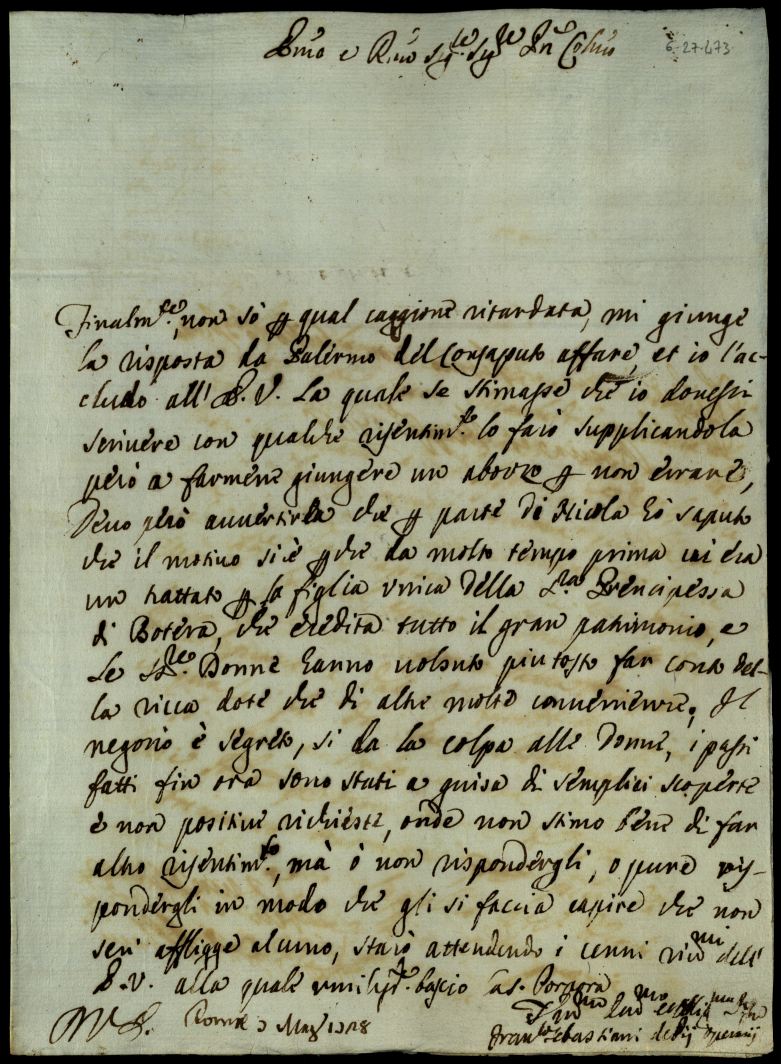 Emo e Rmo Sig.re Sig.re Pne Colmo
6-27-473
Finalm.te, non sò ꝑ qual caggione ritardata, mi giunge
la risposta da Palermo del consaputo affare, et io l'ac-
cludo all' E.V. La quale se stimasse che io dovessi
scrivere con qualche risentim.to lo farò supplicandola
però a farmene giungere un abozzo ꝑ non errare,
Devo però avvertirla che ꝑ parte di Nicola hò saputo
che il motivo si è ꝑche da molto tempo prima vi era
un trattato ꝑ la figlia unica della S.ra Prencipessa
di Botera, che eredita tutto il gran patrimonio, e
le Donne hanno voluto piu tosto far conto del-
la ricca dote che di altre molte convenienze. Il
negozio è segreto, si da la colpa alle Donne, i passi
fatti fin ora sono stati a guisa di semplici scoperte
e non positive richieste, onde non stimo bene di far
altro risentim.to, mà ò non rispondergli, o pure ris-
pondergli in modo che gli si faccia capire che non
seri affligge alcuno, starò attendendo i cenni riv.mi dell'
E.V. alla quale umilm.te bagio la S. Porpora
Roma Mag.
Fran.co Sebastiani